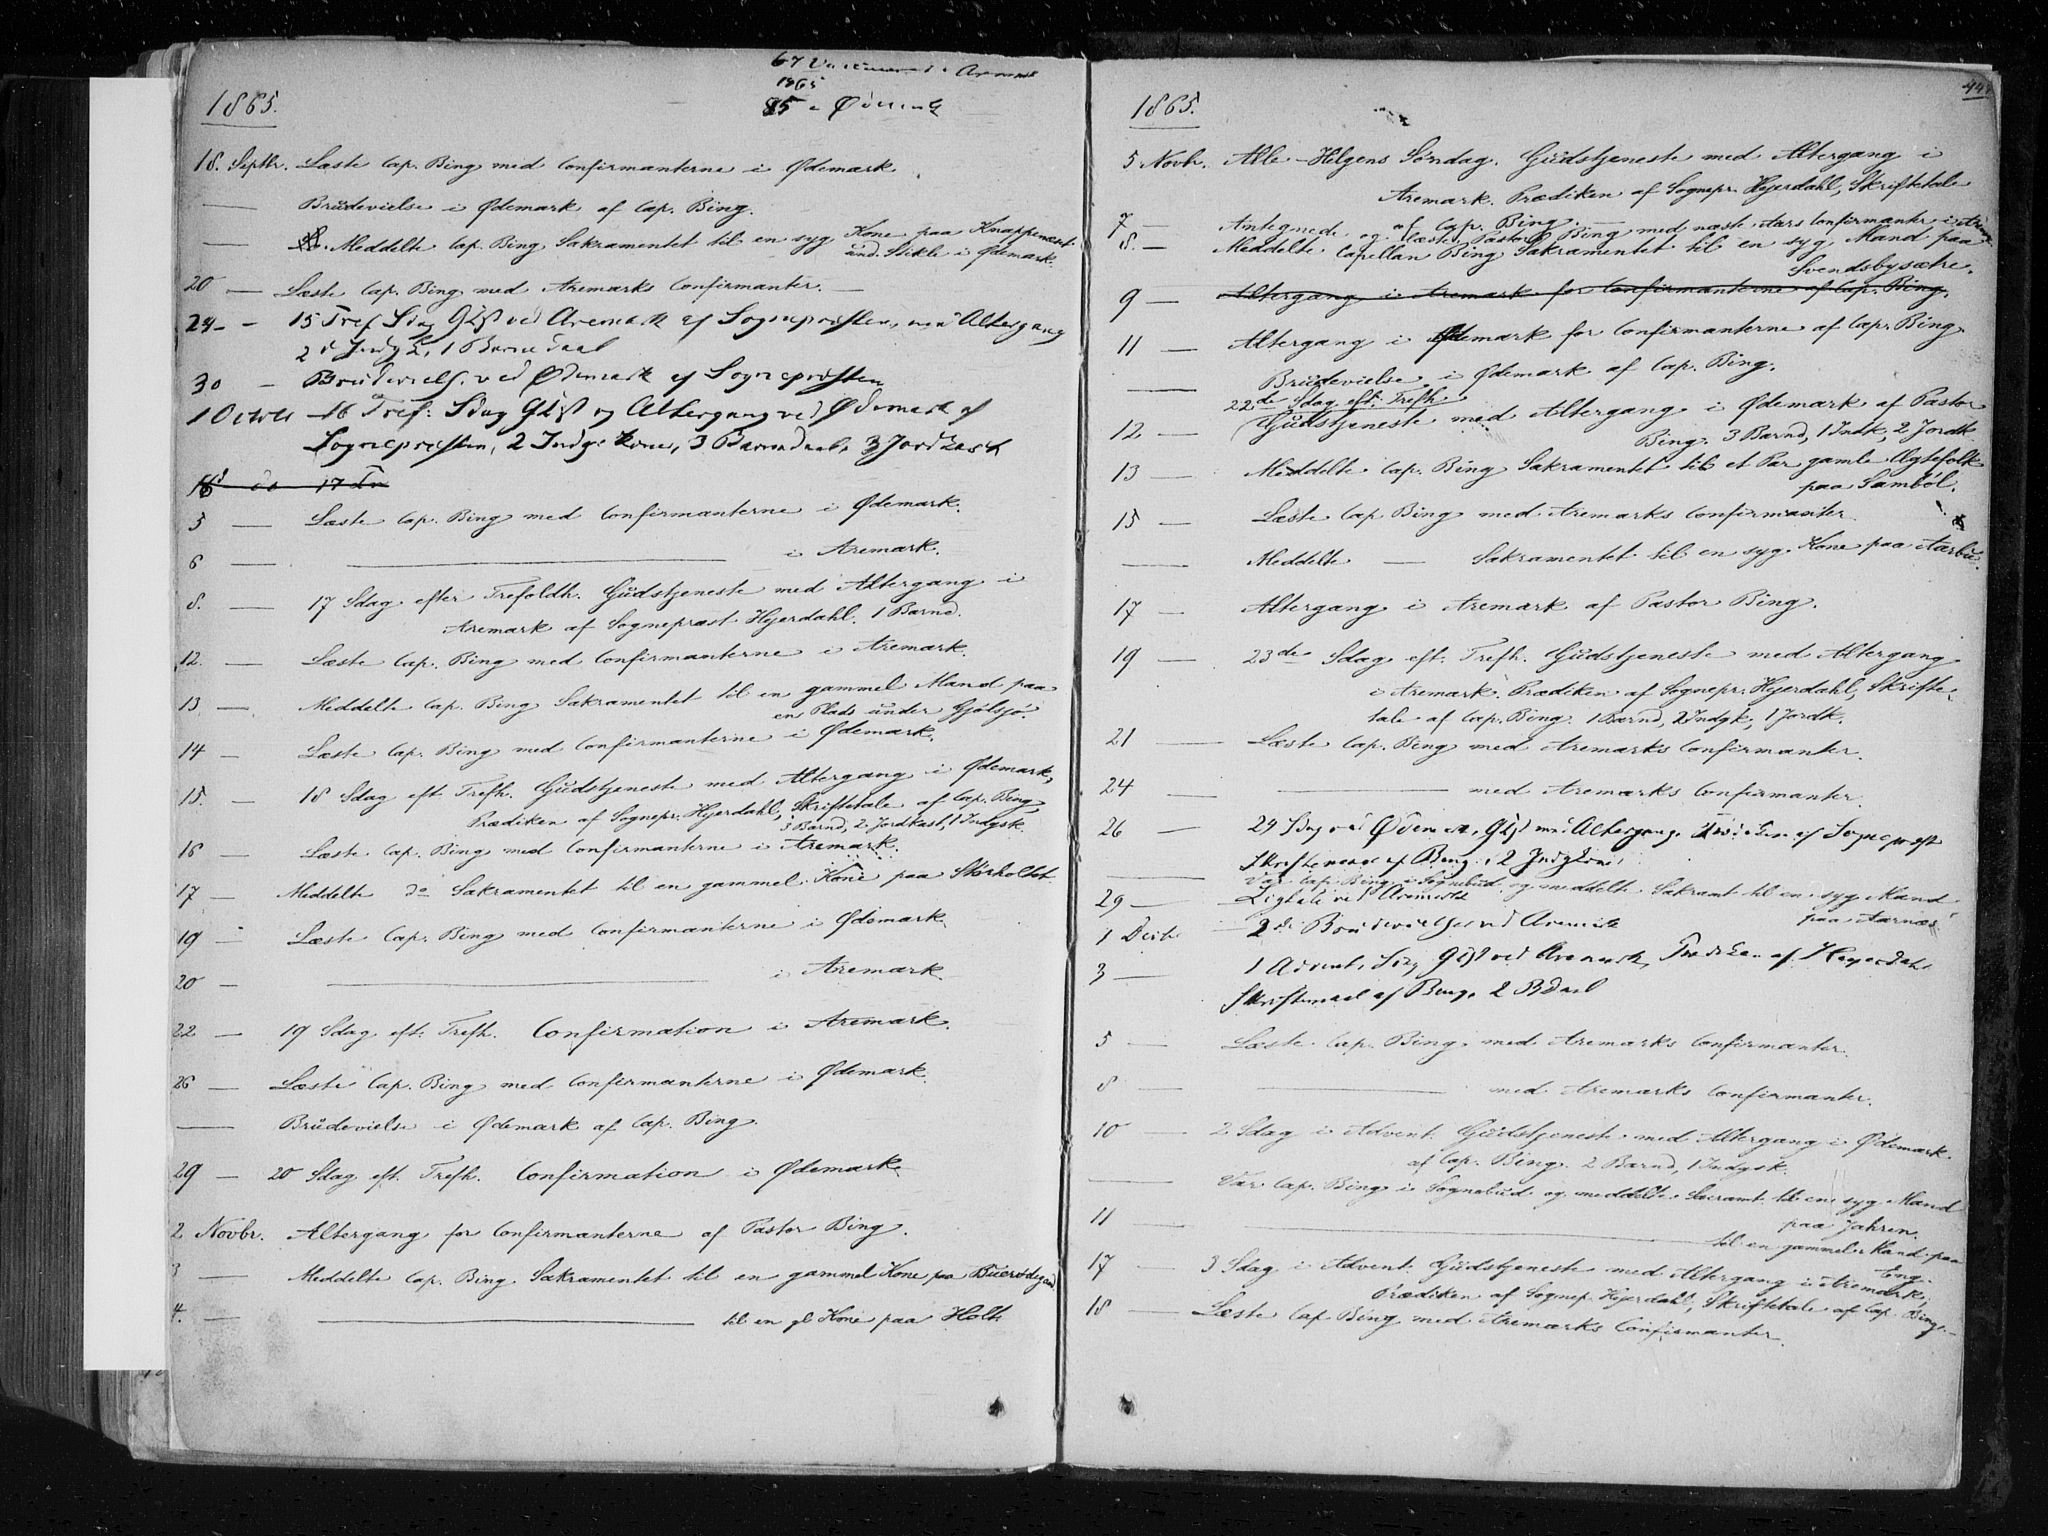 67 Vaccinerede i Aremark
1865
85 i Ødemark
1865.
18. Septbr. Læste Cap. Bing med Confirmanterne i Ødemark.
— Brüdevielse i Ødemark af Cap. Bing.
— Meddelte Cap. Bing Sakramentet til en syg Kone paa Knappenæset
und. Stikle i Ødemark.
20 — Læste Cap. Bing med Aremarks Confirmanter. —
24 - - 15 Tref Sdag Gtjst ved Aremark af Sognepræsten, med Altergang
2 Indgk, 1 Barnedaab
30 - Brudevielse ved Ødemark af Sognepræsten
1 Octobr 16 Tref: Sdag Gtjst og Altergang ved Ødemark af
Sognepræsten, 2 Indg: Kone, 3 Barnedaab, 3 Jordkast
17
5 — Læste Cap. Bing med Confirmanterne i Ødemark.
6 — — i Aremark.
8. — 17 Sdag efter Trefoldh. Güdstjeneste med Altergang i
Aremark af Sognepræst Hjerdahl. 1 Barnd.
12. — Læste Cap. Bing med Confirmanterne i Aremark.
13 — Meddelte Cap. Bing Sakramentet til en gammel Mand paa
en Plads ünder Gjølsjø.
14 — Læste Cap. Bing med Confirmanterne i Ødemark.
15. — 18 Sdag eft Trefh. Güdstjeneste med Altergang i Ødemark,
Prædiken af Sognepr. Hjerdahl, Skriftetale af Cap. Bing,
3 Barnd, 2 Jordkast, 1 Indgsk.
16 — Læste Cap. Bing med Confirmanterne i Aremark.
17 — Meddelte do Sakramentet til en gammel Kone paa Størholtet
19 - Læste Cap. Bing med Confirmanterne i Ødemark.
20 - — i Aremark
22 — 19 Sdag eft: Trefh. Confirmation i Aremark.
26 — Læste Cap. Bing med Confirmanterne i Ødemark.
— Brüdevielse i Ødemark af Cap. Bing.
29 — 20 Sdag eft. Trefh. Confirmation i Ødemark.
2 Novbr. Altergang for Confirmanterne af Pastor Bing.
3 — Meddelte Cap. Bing Sakramentet til en gammel Kone paa
4. — — til en gl Kone paa Holt
1865.
5 Novbr. Alle-Helgens Søndag. Güdstjeneste med Altergang i
Aremark. Prædiken af Sognepr. Hjerdahl, Skriftetale
af Cap. Bing.
7 — Antegnede og læste Pastor Bing med næste Aars Confirmantr i Arem.
8. — Meddelte Capellan Bing Sakramentet til en syg Mand paa
Svendsbysætre.
9 — Altergang i Aremark for Confirmanterne af Cap. Bing.
11 — Altergang i Ødemark for Confirmanterne af Cap. Bing.
— Brüdevielse i Ødemark af Cap. Bing.
22de Sdag eft. Trefh.
12 — Güdstjeneste med Altergang i Ødemark af Pastor
Bing. 3 Barnd, 1 Indk, 2 Jordk
13 — Meddelte Cap. Bing Sakramentet til et Par gamle Ægtefolk
paa Sambøl.
15 — Læste Cap Bing med Aremarks Confirmanter
— Meddelte — Sakramentet til en syg Kone paa Aarbü.
17 — Altergang i Aremark af Pastor Bing.
19 — 23de Sdag eft. Trefh. Güdstjeneste med Altergang
i Aremark. Prædiken af Sognepr. Hjerdahl, Skrifte-
tale af Cap. Bing. 1 Barnd, 2 Indgk, 1 Jordk.
21 — Læste Cap. Bing med Aremarks Confirmanter.
24 — — med Aremarks Confirmanter.
26 — 24 Sdag ved Ødemark, Gtjst med Altergang. Prædiken af Sognepræst
Skriftemaal af Bing, 2 Indgkoner
— Var Cap. Bing i Sognebud og meddelte Sakramt til en syg Mand
paa Aarnæs
29 — Ligtale ved Aremark
1 Decbr 2de Brudevielser ved Aremark
3 — 1 Advent. Sdag Gtjst ved Aremark, Prædiken af Hjerdahl
Skriftemaal af Bing. 2 Bdaab
5 — Læste Cap. Bing med Aremarks Confirmanter.
8 — — med Aremarks Confirmanter.
10 — 2 Sdag i Advent. Güdstjeneste med Altergang i Ødemark.
af Cap. Bing. 2 Barnd, 1 Indgsk.
— Var Cap. Bing i Sognebud og meddelte Sacramt til en syg Mand
paa Jahren.
11 — — til en gammel Mand paa
Eng.
17 — 3 Sdag i Advent. Güdstjeneste med Altergang i Aremark,
Prædiken af Sognep. Hjerdahl, Skriftetale af Cap. Bing.
18 — Læste Cap Bing med Aremarks Confirmanter.